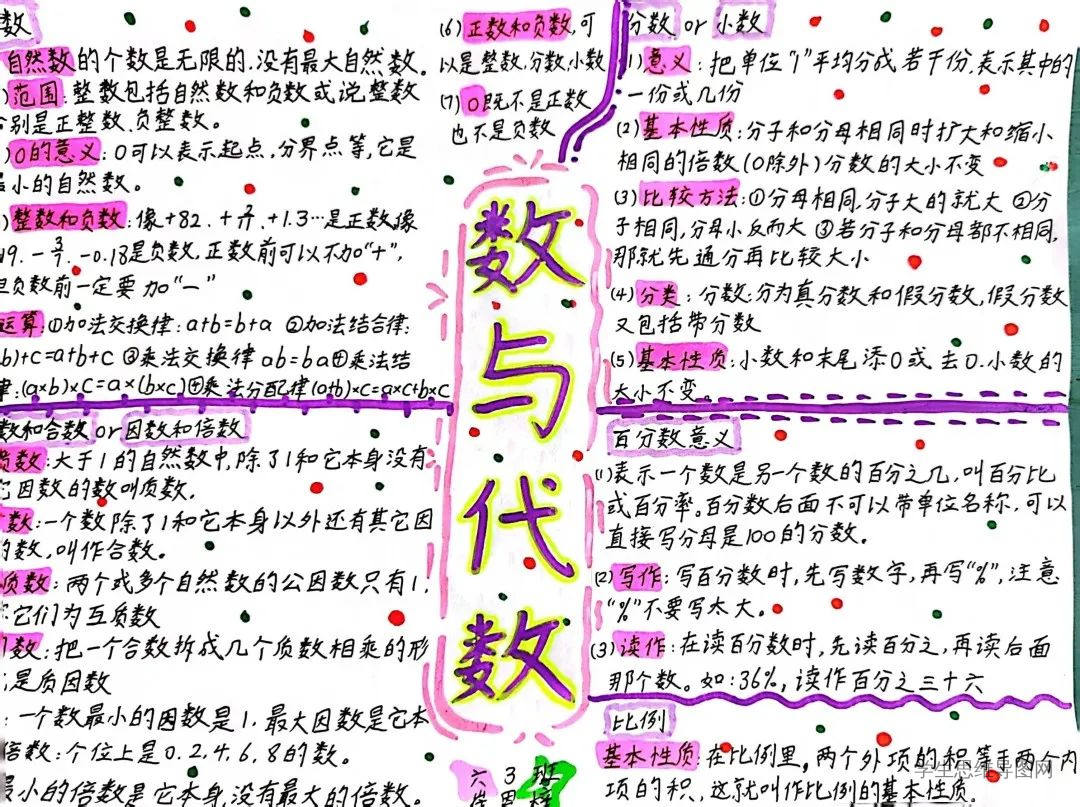 数
自然数的个数是无限的,没有最大自然数。
范围:整数包括自然数和负数或说整数
别是正整数、负整数。
0的意义:0可以表示起点,分界点等,它是
小的自然数。
整数和负数:像+82、+2/7、+1.3…是正数像
9、-3/7、-0.18是负数,正数前可以不加“+”,
负数前一定要加“-”
运算:①加法交换律:a+b=b+a ②加法结合律:
b)+c=a+b+c ③乘法交换律ab=ba④乘法结
律:(a×b)×c=a×(b×c)④乘法分配律(a+b)×c=a×c+b×c
(6)正数和负数,可
以是整数,分数,小数
(7)0既不是正数
也不是负数
分数 or 小数
1)意义:把单位“1”平均分成若干份,表示其中的
一份或几份
(2)基本性质:分子和分母相同时扩大和缩小
相同的倍数(0除外)分数的大小不变
(3)比较方法:①分母相同,分子大的就大 ②分
子相同,分母小反而大 ③若分子和分母都不相同,
那就先通分再比较大小
(4)分类:分数:分为真分数和假分数,假分数
又包括带分数
(5)基本性质:小数和末尾添0或去0.小数的
大小不变。
数与代数
数和合数 or 因数和倍数
质数:大于1的自然数中,除了1和它本身没有
因数的数叫质数.
数:一个数除了1和它本身以外还有其它因
数,叫作合数。
质数:两个或多个自然数的公因数只有1,
它们为互质数
数:把一个合数拆成几个质数相乘的形
是质因数
:一个数最小的因数是1,最大因数是它本
倍数:个位上是0,2,4,6,8的数。
小的倍数是它本身,没有最大的倍数。
百分数意义
(1)表示一个数是另一个数的百分之几,叫百分比
或百分率。百分数后面不可以带单位名称,可以
直接写分母是100的分数。
(2)写作:写百分数时,先写数字,再写“%”,注意
“%”不要写太大。
(3)读作:在读百分数时,先读百分之,再读后面
那个数。如:36%,读作百分之三十六
比例
基本性质:在比例里,两个外项的积等于两个内
项的积,这就叫作比例的基本性质。
六3班
学生思维导图网